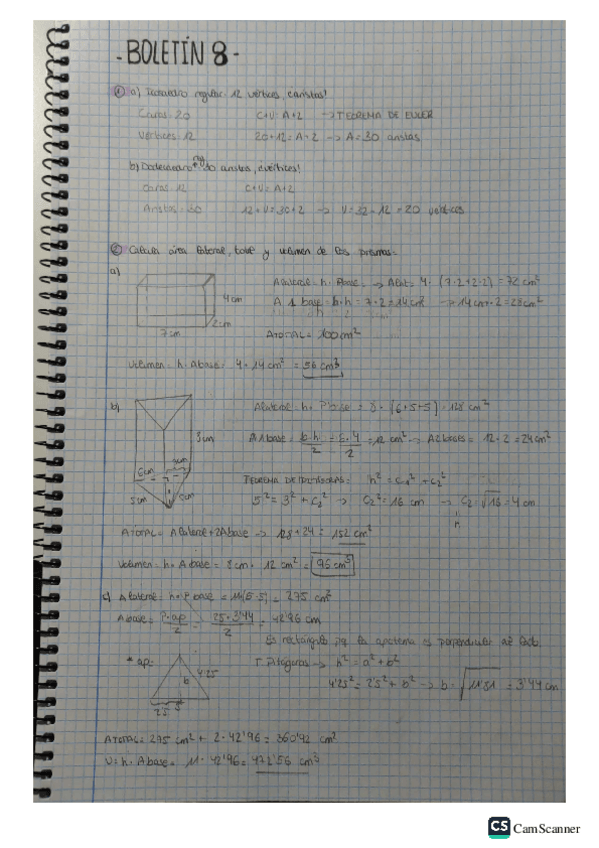 - BOLETÍN 8 -
① a) Icosaedro regular 12 vértices, ¿aristas?
Caras: 20 C+V = A+2 → TEOREMA DE EULER
Vértices: 12 20+12 = A+2 → A = 30 aristas
b) Dodecaedro reg 30 aristas, ¿vértices?
Caras: 12 C+V = A+2
Aristas: 30 12+V = 30+2 → V = 32-12 = 20 vértices
② Calcula área lateral, total y volumen de los prismas:
a)
Alateral = h · Pbase = → Alat = 4 · (7·2+2·2) = 72 cm²
4 cm
A 1 base = b·h = 7·2 = 14 cm² → 14 cm · 2 = 28 cm²
2 cm
7 cm
ATOTAL = 100 cm²
Volumen = h · Abase = 4 · 14 cm² = 56 cm³
b)
Alateral = h · Pbase = 8 · (6+5+5) = 128 cm²
8 cm
A 1 base = b·h/2 = 6·4/2 = 12 cm² → A2 bases = 12 · 2 = 24 cm²
6 cm
5 cm
TEOREMA DE PITÁGORAS: h² = c₁² + c₂²
5² = 3² + c₂² → c₂² = 16 cm → c₂ = √16 = 4 cm
h
ATOTAL = Alateral + 2Abase → 128 + 24 = 152 cm²
Volumen = h · Abase = 8 cm · 12 cm² = 96 cm³
c) Alateral = h · Pbase = 11 (5·5) = 275 cm²
Abase = P·ap/2 = 25·3'44/2 = 42'96 cm
Es rectángulo pq la apotema es perpendicular al lado.
* ap: T. Pitágoras → h² = a² + b²
4'25
b
4'25² = 2'5² + b² → b = √11'81 = 3'44 cm
2'5 5
ATOTAL = 275 cm² + 2 · 42'96 = 360'92 cm²
V = h · Abase = 11 · 42'96 = 472'56 cm³
CS CamScanner